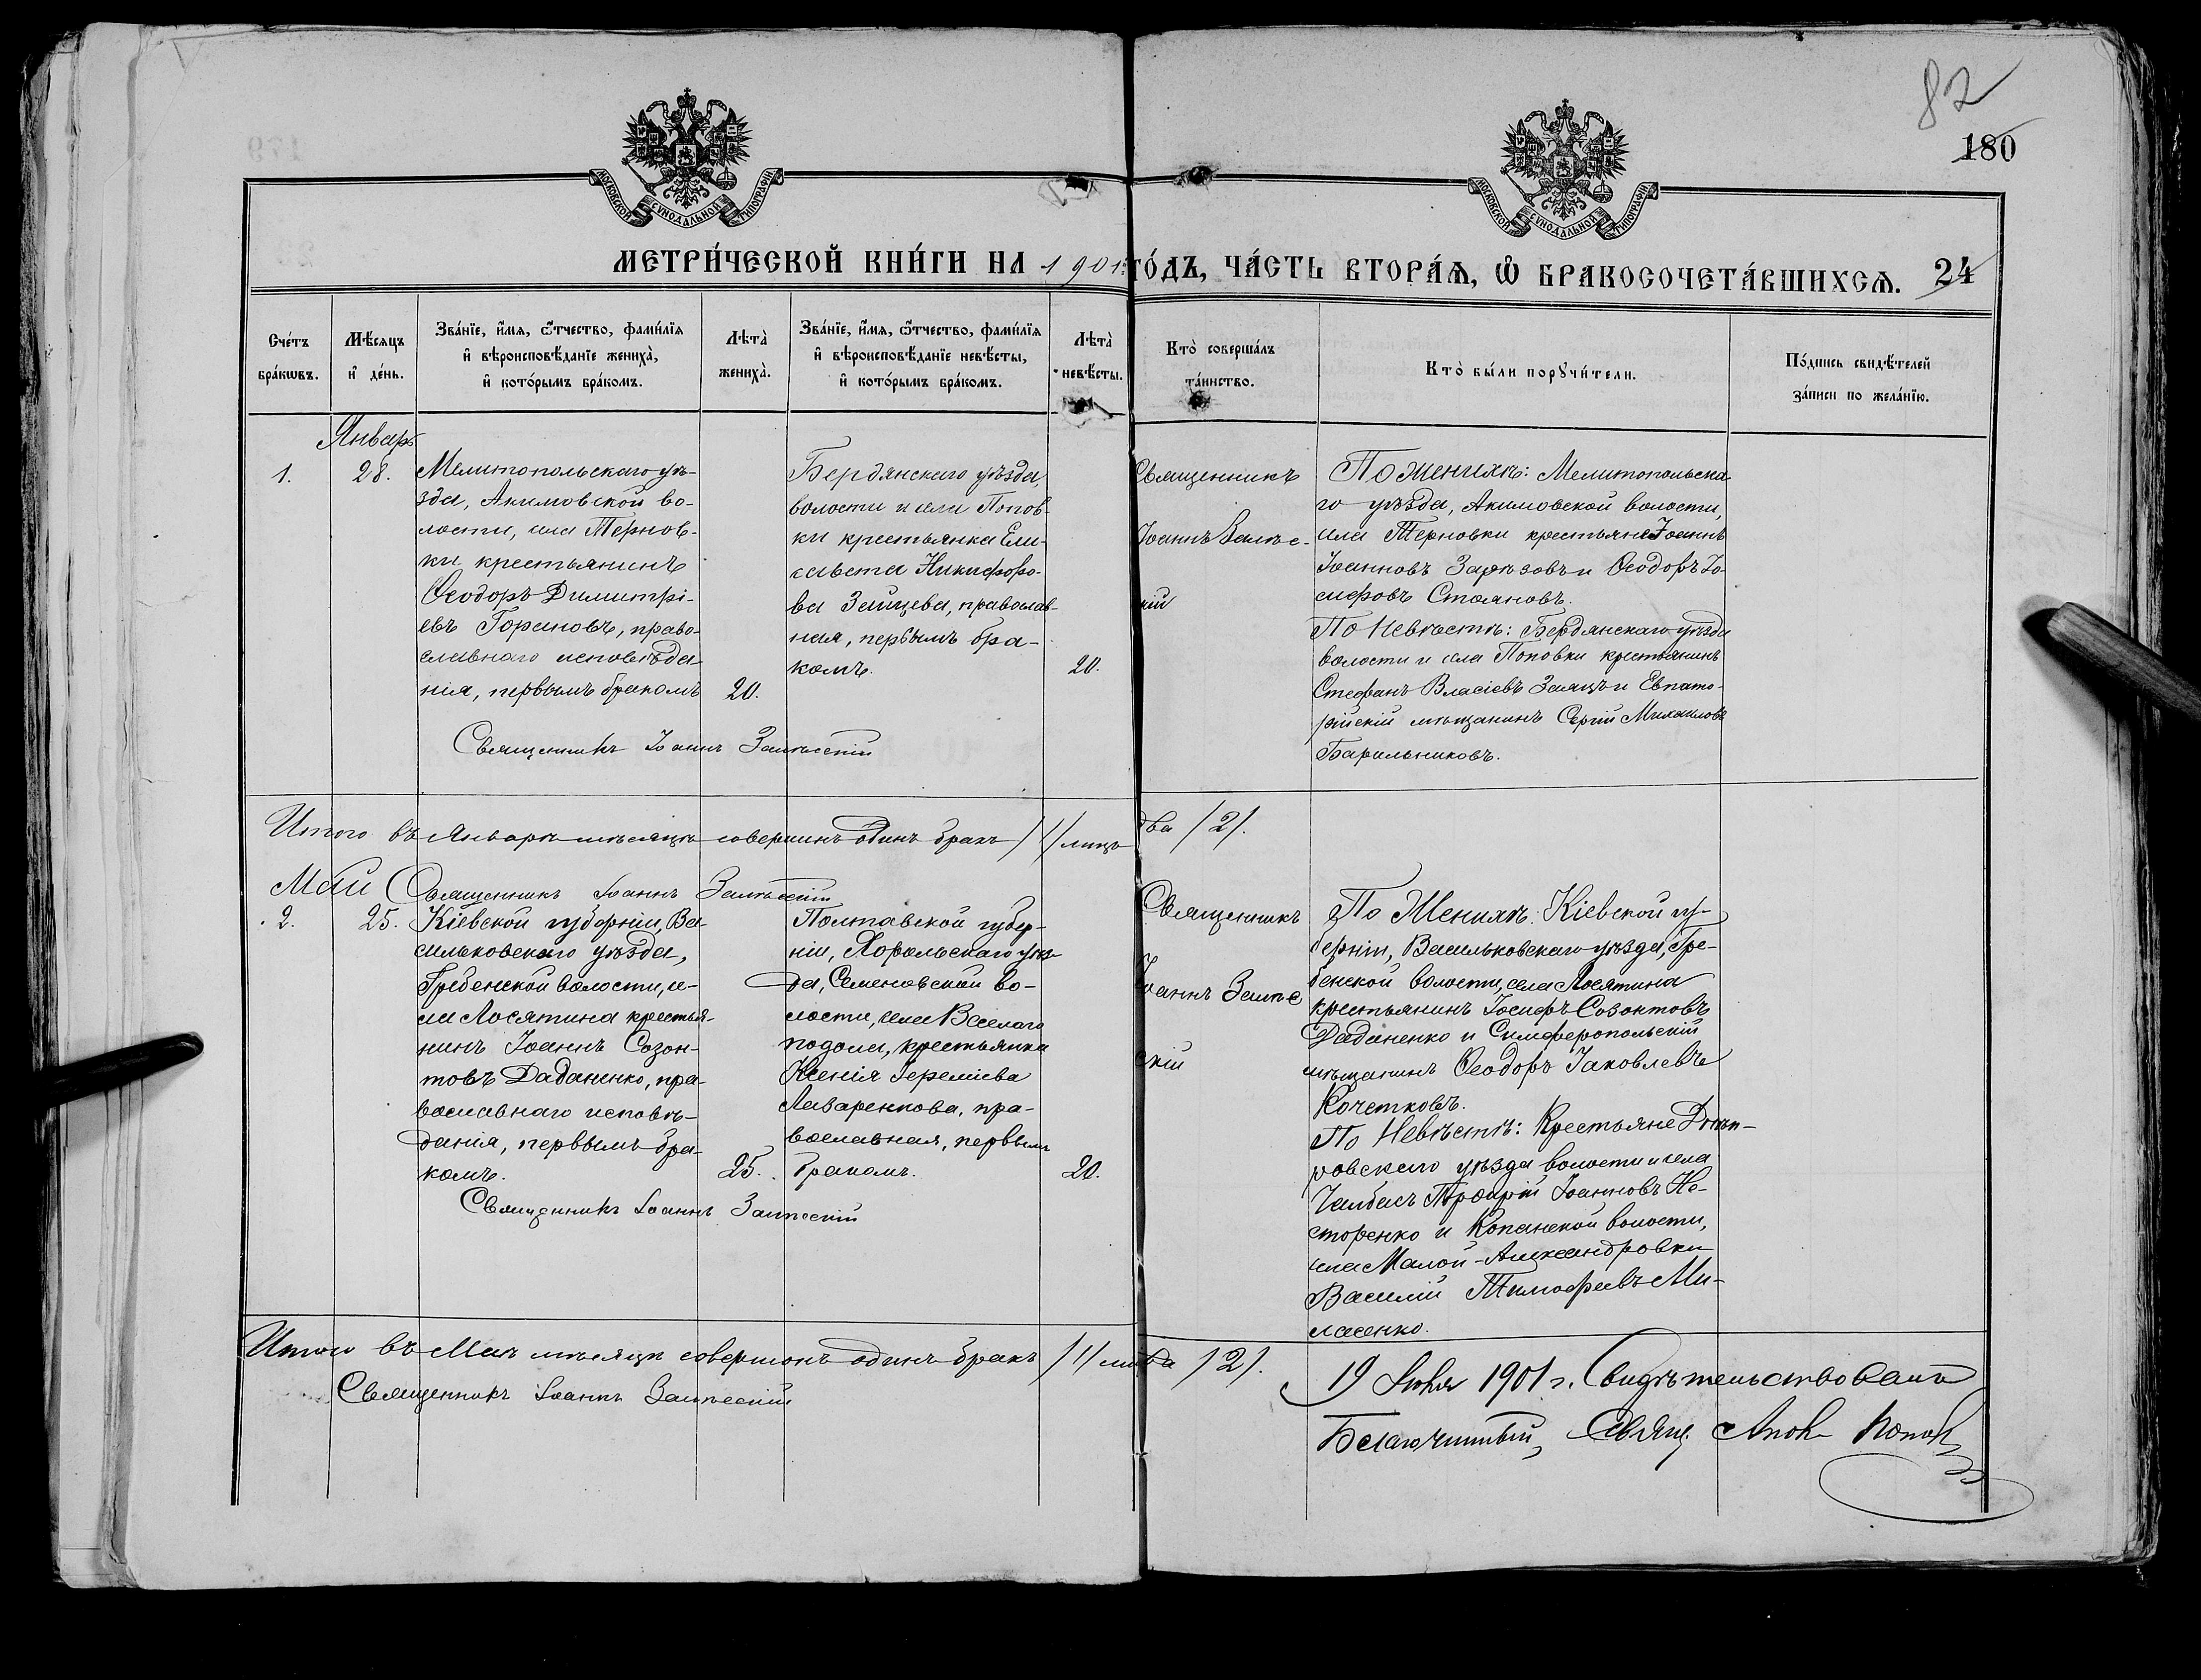 82
180
МОСКОВСКОЙ СѴНОДАЛЬНОЙ ТИПОГРАФІИ
МОСКОВСКОЙ СѴНОДАЛЬНОЙ ТИПОГРАФІИ
МЕТРИ́ЧЕСКОЙ КНИ́ГИ НА 1901 ГО́ДЪ, ЧА́СТЬ ВТОРА́Ѧ, Ѡ҆ БРАКОСОЧЕТА́ВШИХСѦ. 24
Сче́тъ
бра́кѡвъ.
Мѣ́сѧцъ
и҆ де́нь.
Зва́нїе, и҆́мѧ, ѻ҆́тчество, фами́лїѧ
и҆ вѣроисповѣ́данїе жениха̀,
и҆ кото́рымъ бра́комъ.
Лѣта̀
жениха̀.
Зва́нїе, и҆́мѧ, ѻ҆́тчество, фами́лїѧ
и҆ вѣроисповѣ́данїе невѣ́сты,
и҆ кото́рымъ бра́комъ.
Лѣта̀
невѣ́сты.
Кто̀ соверша́лъ
та́инство.
Кто̀ бы́ли порꙋчи́тели.
По́дпись свидѣ́телей
за́писи по жела́нїю.
Январь
1.
28.
Мелитопольскаго уѣ-
зда, Акимовской во-
лости, села Тернов-
ки крестьянинъ
Ѳеодоръ Димитрі-
евъ Горановъ, право-
славнаго исповѣда-
нія, первымъ бракомъ
20.
Бердянскаго уѣзда,
волости и села Попов-
ки крестьянка Ели-
савета Никифоро-
ва Зайцева, православ-
ная, первымъ бра-
комъ.
20.
Священникъ
Іоаннъ Залѣс-
кій
По Женихѣ: Мелитопольска-
го уѣзда, Акимовской волости,
села Терновки крестьяне Іоаннъ
Іоанновъ Зарѣзовъ и Ѳеодоръ Іо-
сифовъ Стояновъ.
По Невѣстѣ: Бердянскаго уѣзда
волости и села Поповки крестьянинъ
Стефанъ Власіевъ Заяцъ и Евпато-
рійскій мѣщанинъ Сергій Михаиловъ
Барильниковъ.
Священникъ Іоаннъ Залѣсскій
Итого въ Январѣ мѣсяцѣ совершенъ одинъ бракъ /1/ лицъ два /2/.
Священникъ Іоаннъ Залѣсскій
Май
2.
25.
Кіевской губерніи, Ва-
сильковскаго уѣзда,
Гребенской волости, се-
ла Лосятина крестья-
нинъ Іоаннъ Созон-
товъ Даданенко, пра-
вославнаго исповѣ-
данія, первымъ бра-
комъ.
25.
Полтавской губер-
ніи, Хорольскаго уѣз-
да, Семеновской во-
лости, села Веселаго
подола, крестьянка
Ксенія Іереміева
Лазаренкова, пра-
вославная, первымъ
бракомъ.
20.
Священникъ
Іоаннъ Залѣс
скій
По Женихѣ: Кіевской гу-
берніи, Васильковскаго уѣзда, Гре-
бенской волости, села Лосятина
крестьянинъ Іосифъ Созонтовъ
Даданенко и Симферопольскій
мѣщанинъ Ѳеодоръ Іаковлевъ
Кочетковъ.
По Невѣстѣ: Крестьяне Днѣп-
ровскаго уѣзда волости и села
Чалбасъ Іоанновъ Не-
сторенко и Копанской волости,
села Малой-Александровки
Василій Тимофеевъ Ми-
ласенко.
Священникъ Іоаннъ Залѣсскій
Итого въ Маѣ мѣсяцѣ совершонъ одинъ бракъ /1/ лицъ два /2/.
Священникъ Іоаннъ Залѣсскій
19 1901 г. Свидѣтельствовалъ
Благочинный, Свящ. Попов